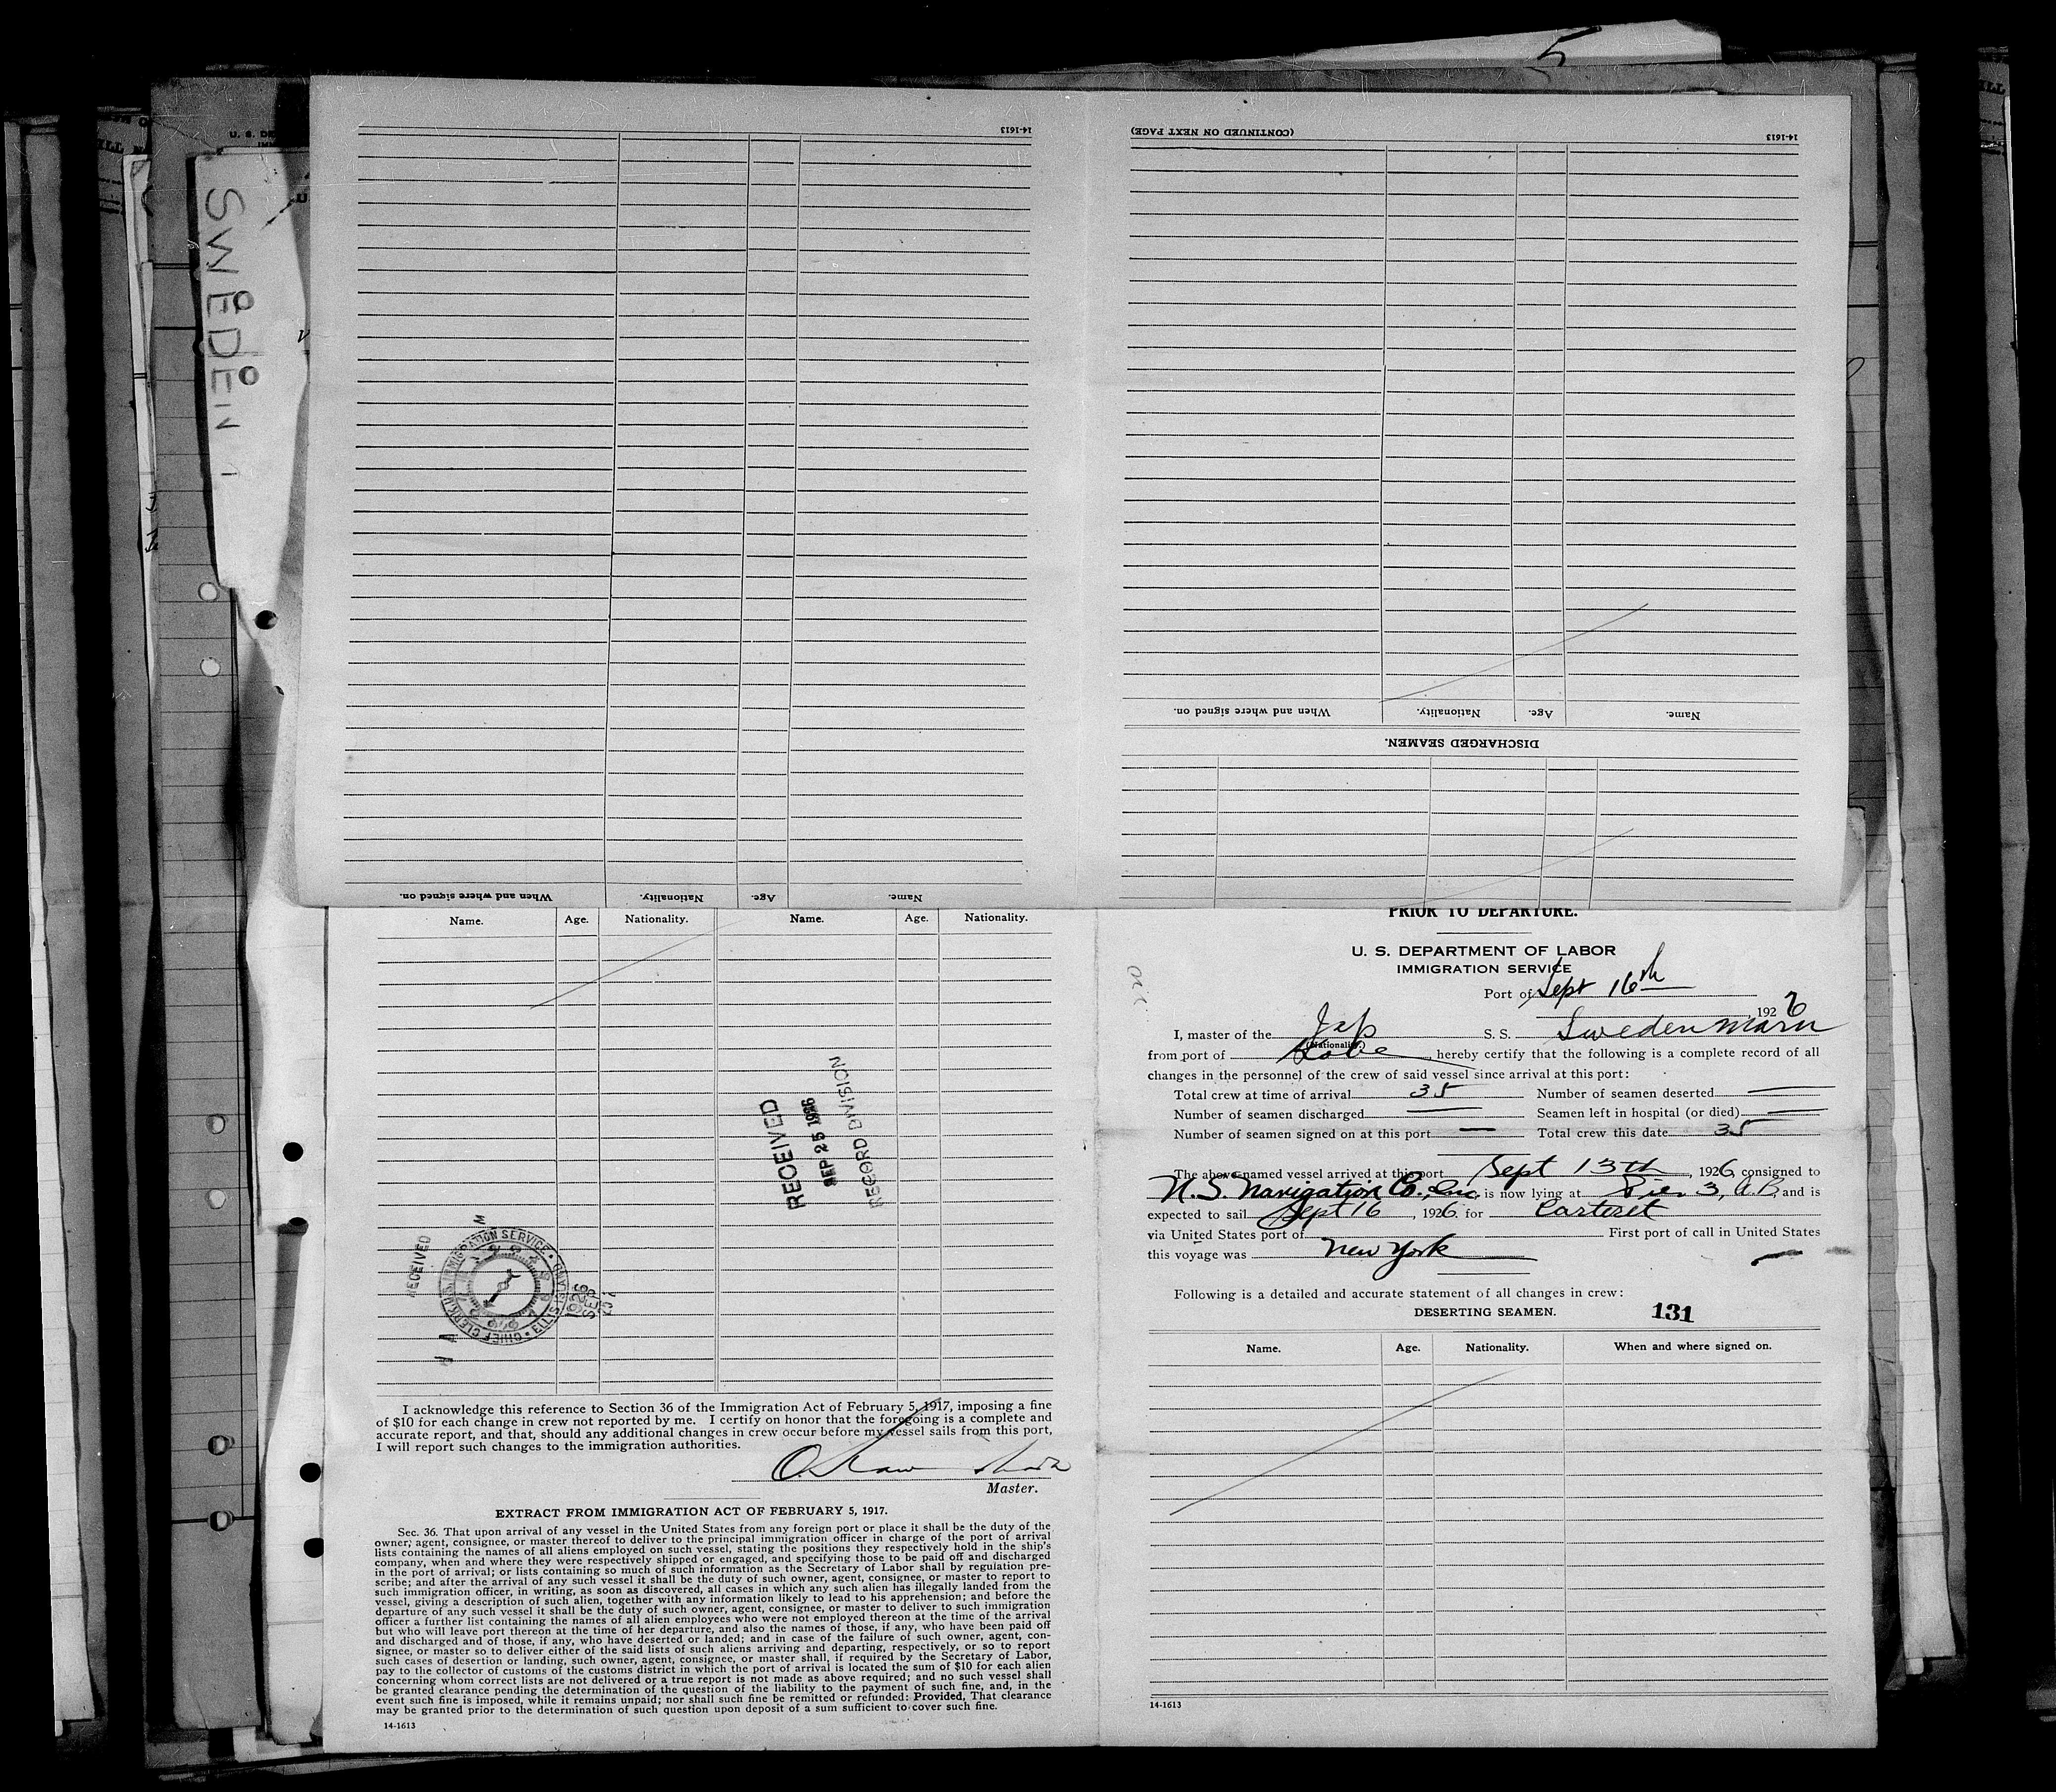 5
SWEDEN
14-1613
(CONTINUED ON NEXT PAGE)
14-1613
When and where signed on. Nationality. Age. Name.
DISCHARGED SEAMEN.
When and where signed on. Nationality. Age. Name.
Name. Age. Nationality. Name. Age. Nationality.
RECEIVED
SEP 25 1926
RECORD DIVISION
RECEIVED
IMMIGRATION SERVICE • ELLIS ISLAND • CHIEF CLERK
1926
SEP
I acknowledge this reference to Section 36 of the Immigration Act of February 5, 1917, imposing a fine
of $10 for each change in crew not reported by me. I certify on honor that the foregoing is a complete and
accurate report, and that, should any additional changes in crew occur before my vessel sails from this port,
I will report such changes to the immigration authorities.
Master.
EXTRACT FROM IMMIGRATION ACT OF FEBRUARY 5, 1917.
Sec. 36. That upon arrival of any vessel in the United States from any foreign port or place it shall be the duty of the
owner, agent, consignee, or master thereof to deliver to the principal immigration officer in charge of the port of arrival
lists containing the names of all aliens employed on such vessel, stating the positions they respectively hold in the ship's
company, when and where they were respectively shipped or engaged, and specifying those to be paid off and discharged
in the port of arrival; or lists containing so much of such information as the Secretary of Labor shall by regulation pre-
scribe; and after the arrival of any such vessel it shall be the duty of such owner, agent, consignee, or master to report to
such immigration officer, in writing, as soon as discovered, all cases in which any such alien has illegally landed from the
vessel, giving a description of such alien, together with any information likely to lead to his apprehension; and before the
departure of any such vessel it shall be the duty of such owner, agent, consignee, or master to deliver to such immigration
officer a further list containing the names of all alien employees who were not employed thereon at the time of the arrival
but who will leave port thereon at the time of her departure, and also the names of those, if any, who have been paid off
and discharged and of those, if any, who have deserted or landed; and in case of the failure of such owner, agent, con-
signee, or master so to deliver either of the said lists of such aliens arriving and departing, respectively, or so to report
such cases of desertion or landing, such owner, agent, consignee, or master shall, if required by the Secretary of Labor,
pay to the collector of customs of the customs district in which the port of arrival is located the sum of $10 for each alien
concerning whom correct lists are not delivered or a true report is not made as above required; and no such vessel shall
be granted clearance pending the determination of the question of the liability to the payment of such fine, and, in the
event such fine is imposed, while it remains unpaid; nor shall such fine be remitted or refunded: Provided, That clearance
may be granted prior to the determination of such question upon deposit of a sum sufficient to cover such fine.
14-1613
PRIOR TO DEPARTURE.
U. S. DEPARTMENT OF LABOR
IMMIGRATION SERVICE
Port of Sept 16th
1926
I, master of the Jap S. S. Sweden Maru
(Nationality)
from port of Kobe, hereby certify that the following is a complete record of all
changes in the personnel of the crew of said vessel since arrival at this port:
Total crew at time of arrival 35 Number of seamen deserted —
Number of seamen discharged — Seamen left in hospital (or died) —
Number of seamen signed on at this port — Total crew this date 35
The above-named vessel arrived at this port Sept 13th, 1926, consigned to
U.S. Navigation Co., Inc. is now lying at Pier 3, A.B. and is
expected to sail Sept 16, 1926 for Carteret
via United States port of First port of call in United States
this voyage was New York
Following is a detailed and accurate statement of all changes in crew:
DESERTING SEAMEN. 131
Name. Age. Nationality. When and where signed on.
14-1613